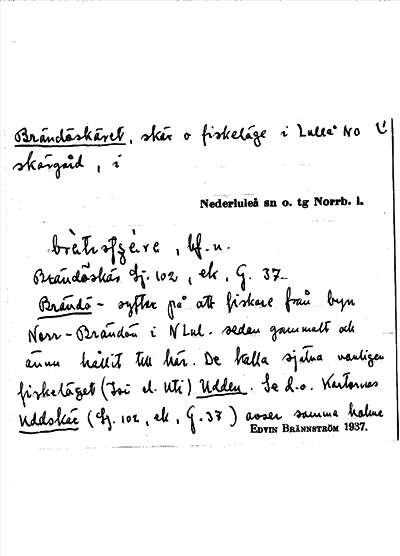 Brändöskäret, skär o fiskeläge i Luleå NO
skärgård, i
Nederluleå sn o. tg Norrb. l.
bf. n.
Brändöskär Gj. 102, ek, G. 37
Brändö- syftar på att fiskare från byn
Norr-Brändön i NLul. sedan gammalt och
ännu hållit till här. De kalla själva vanligen
fiskeläget (Isi el. Uti) Udden. Se d.o. Kartornas
Uddskär (Gj. 102, ek, G. 37) avser samma holme
EDVIN BRÄNNSTRÖM 1937.